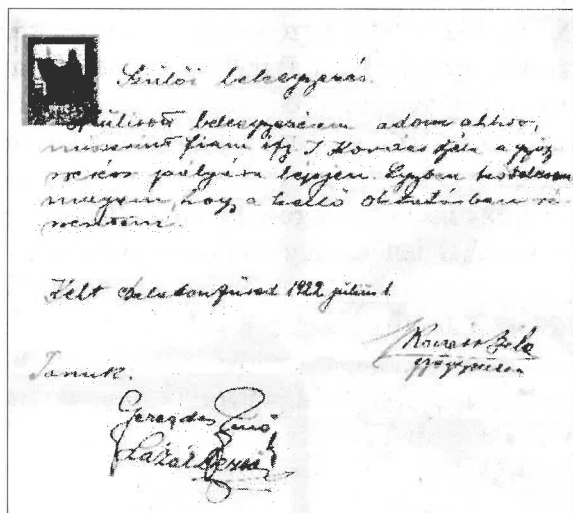 Szülői beleegyezés.
Szülői beleegyezésem adom ahhoz,
miszerint fiam ifj. Kovács Béla a gyógy
pályára lépjen. Egyben kötelezem
magam, hogy a kellő oktatásban ré-
Kelt Balatonfüred 1922 július 1.
Kovács Béla
gyógyszerész
Tanuk.
Gerendás Jenő
Lázár Dezső